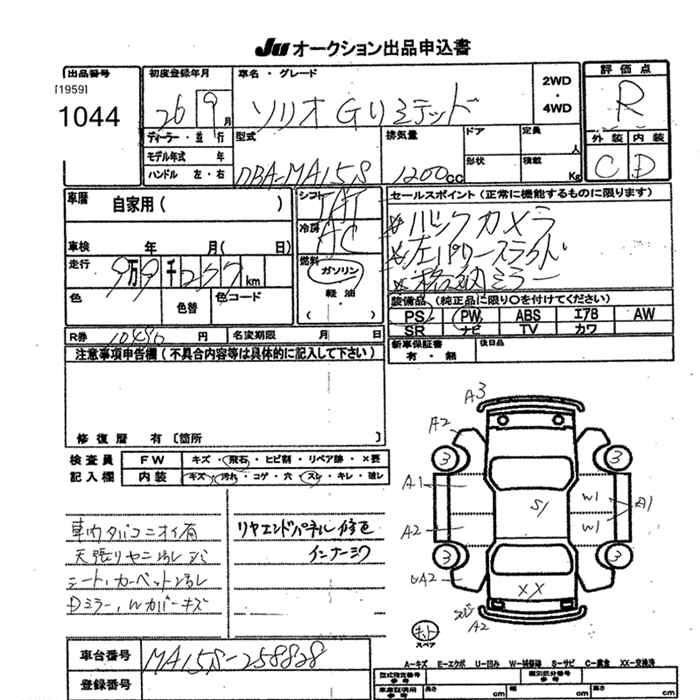 JU オークション出品申込書
出品番号
[1959]
1044
初度登録年月
26 9月
ディーラー・並行
モデル年式 年
ハンドル 左・右
車名・グレード
ソリオ Gリミテッド
2WD
・
4WD
評価点
R
外装 内装
C D
型式
DBA-MA15S
排気量
1200cc
ドア
形状
定員
人
積載
Kg
車歴
自家用( )
車検 年 月( 日)
走行
9万9千277km
色
色替
色コード
シフト
冷房
AC
燃料
ガソリン
軽油・
( )
セールスポイント(正常に機能するものに限ります)
*バックカメラ
*左パワースライド
*格納ミラー
装備品(純正品に限り○を付けてください)
PS PW ABS エアB AW
SR ナビ TV カワ
R券 10490 円
名変期限 月 日
新車保証書
有・無
後日品
注意事項申告欄(不具合内容等は具体的に記入して下さい)
修復歴 有〔箇所 〕
検査員
記入欄
FW キズ・飛石・ヒビ割・リペア跡・×要
内装 キズ・汚れ・コゲ・穴・スレ・キレ・破レ
車内タバコニオイ有
天張りヤニ汚レ
シート、カーペット汚レ
Dミラー、Wカバーキズ
リヤエンドパネル修色
インナーミワ
A3
A2
3 3
A1
A2
S1
W1
W1
A1
3 3
UA2
XX
A2
スペア
A-キズ E-エクボ U-凹み W-補修跡 S-サビ C-腐食 XX-交換済
車台番号
MA15S-258828
登録番号
型式指定番号
参考
類別区分番号
参考
車庫証明用
参考
長さ cm
幅 cm
高さ cm